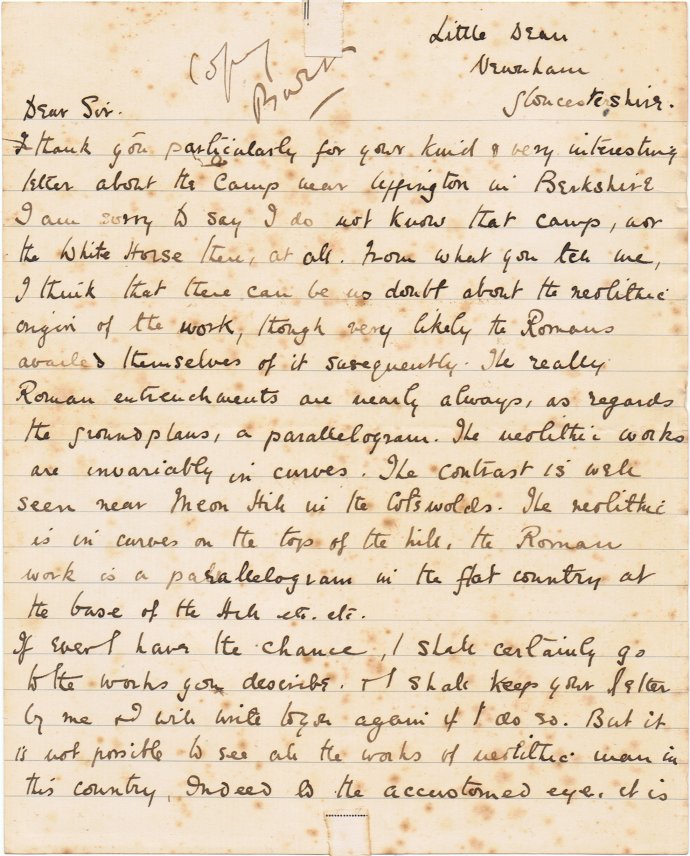 Little Dean
Newnham
Gloucestershire.
Copy
Dear Sir.
I thank you particularly for your kind & very interesting
letter about the Camp near Uffington in Berkshire
I am sorry to say I do not know that camp, nor
the White Horse there, at all. From what you tell me,
I think that there can be no doubt about the neolithic
origin of the work, though very likely the Romans
availed themselves of it susequently. The really
Roman entrenchments are nearly always, as regards
the groundplans, a parallelogram. The neolithic works
are invariably in curves. The contrast is well
seen near Meon Hill in the Cotswolds. The neolithic
is in curves on the top of the hill, the Roman
work is a parallelogram in the flat country at
the base of the Hill etc. etc.
If ever I have the chance, I shall certainly go
to the works you describe. & I shall keep your letter
by me & I will write to you again if I do so. But it
is not possible to see all the works of neolithic man in
this country, Indeed to the accustomed eye, it is